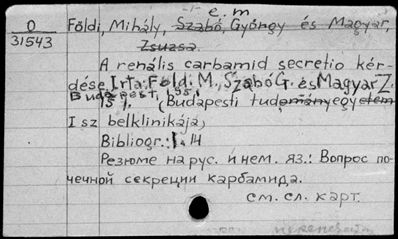 -"- e. m
O
31543
Földi, Mihály, Szabó, Gyöngy és Magyar,
Zsuzsa.
A renális carbamid secretio kér-
dése. Irta: Földi M., Szabó G. és Magyar Z.
Budapest, 1951.
15 l. (Budapesti tudományegyetem
I sz belklinikája)
Bibliogr.: 1. 14
Резюме на рус. и нем. яз.: Вопрос по-
чечной секреции карбамида.
см. сл. карт.